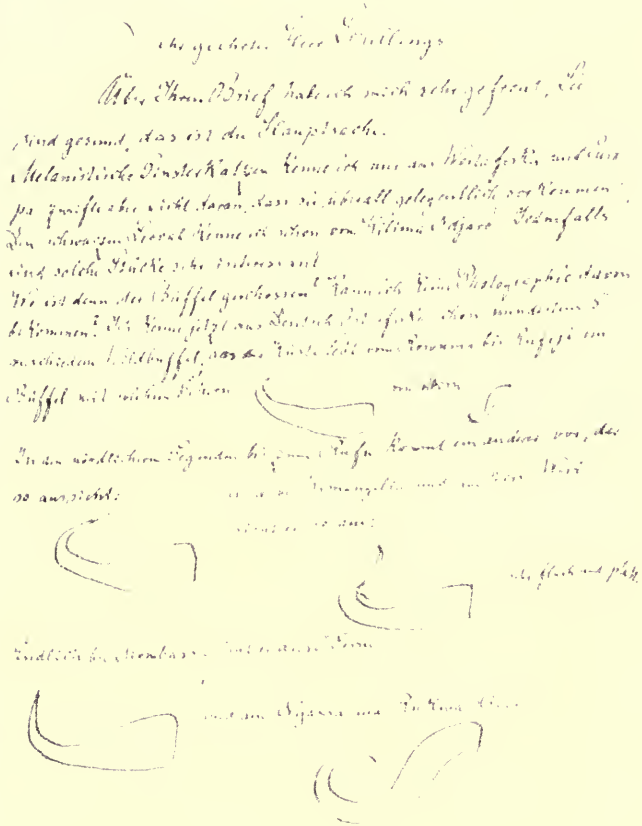 Sehr geehrter Herr Schillings
Über Ihren Brief habe ich mich sehr gefreut, Sie
sind gesund, das ist die Hauptsache.
Melanistische Ginsterkatzen kenne ich nur aus Westafrika und Euro
pa zweifle aber nicht daran, dass sie überall gelegentlich vorkommen
Den schwarzen Serval kenne ich schon vom Kilima Ndjaro Jedenfalls
sind solche Stücke sehr interessant
Wo ist denn der Büffel geschossen? Kann ich keine Photographie davon
bekommen? Ich kenne jetzt aus Deutsch Ost Afrika schon mindestens 5
verschiedene Wildbüffel, an der Küste lebt vom Rowuma bis Rufiji ein
Büffel mit solchen Hörnern von oben
In den nördlicheren Gegenden bis zum Rufu kommt ein anderer vor, der
so aussieht: und
sieht er so aus:
sehr flach und platt
Endlich bei Mombassa hat er diese Form
und am Nyassa und Rukwa